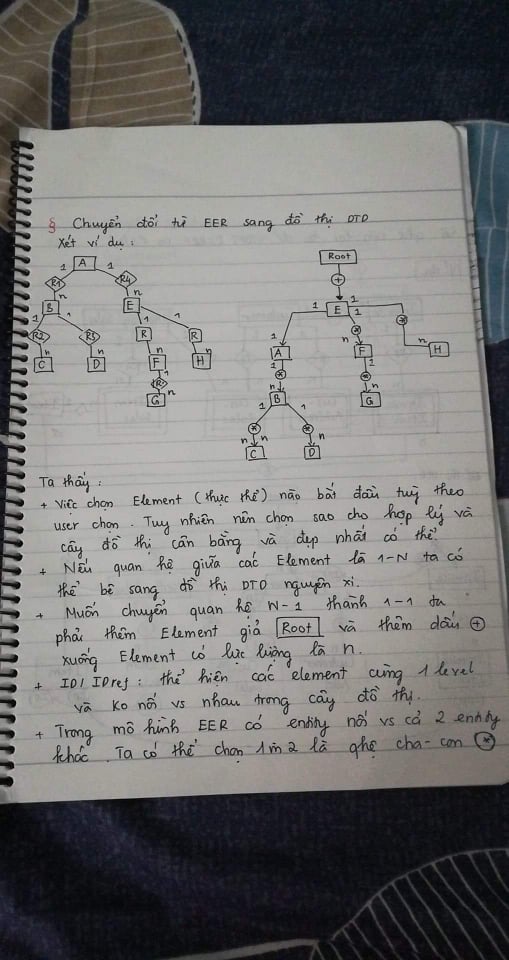 § Chuyển đổi từ EER sang đồ thị DTD
Xét ví dụ :
A
1 1
R1 R4
n n
B E
1 1 1 1
R2 R3 R R
n n n n
C D F H
1
R
n
G
Root
+
1 E 1
1
* *
1 n n
A F H
1 1
* *
n n
B G
1 1
* *
n n n
C D
Ta thấy :
+ Việc chọn Element (thực thể) nào bắt đầu tuỳ theo
user chọn. Tuy nhiên nên chọn sao cho hợp lý và
cây đồ thị cân bằng và đẹp nhất có thể.
+ Nếu quan hệ giữa các Element là 1-N ta có
thể bê sang đồ thị DTD nguyên xi.
+ Muốn chuyển quan hệ N-1 thành 1-1 ta
phải thêm Element giả Root và thêm dấu +
xuống Element có lực lượng là n.
+ ID/IDref : thể hiện các element cùng 1 level
và ko nối vs nhau trong cây đồ thị.
+ Trong mô hình EER có entity nối vs cả 2 entity
khác. Ta có thể chọn 1 in 2 là qhệ cha-con *